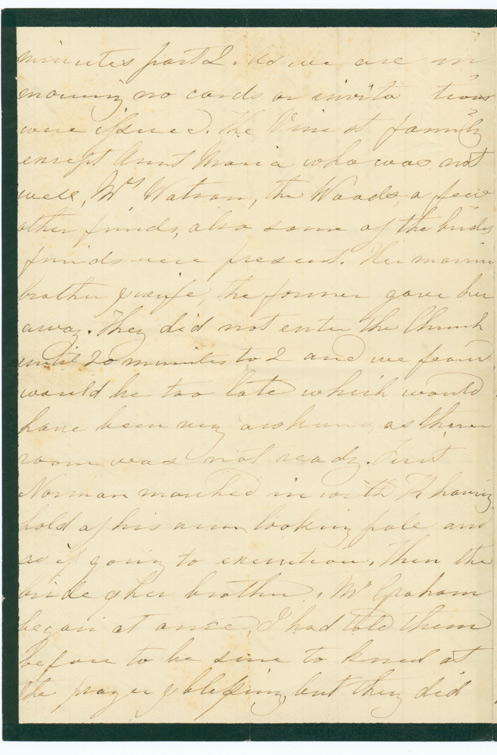 minutes past 2. As we are in
mourning no cards or invita tions
were issued. The Vine st family
except Aunt Maria who was not
well, Mrs Watson, the Woods, a few
other friends, also some of the brides
friends were present. Her married
brother & wife, the former gave her
away. They did not enter the Church
until 20 minutes to 2 and we feared
would be too late which would
have been very awkward as their
room was not ready. First
Norman marched in with H having
hold of his arm looking pale and
as if going to execution. Then the
bride & her brother. Mr Graham
began at once, I had told them
before to be sure to kneel at
the prayer & blessing, but they did